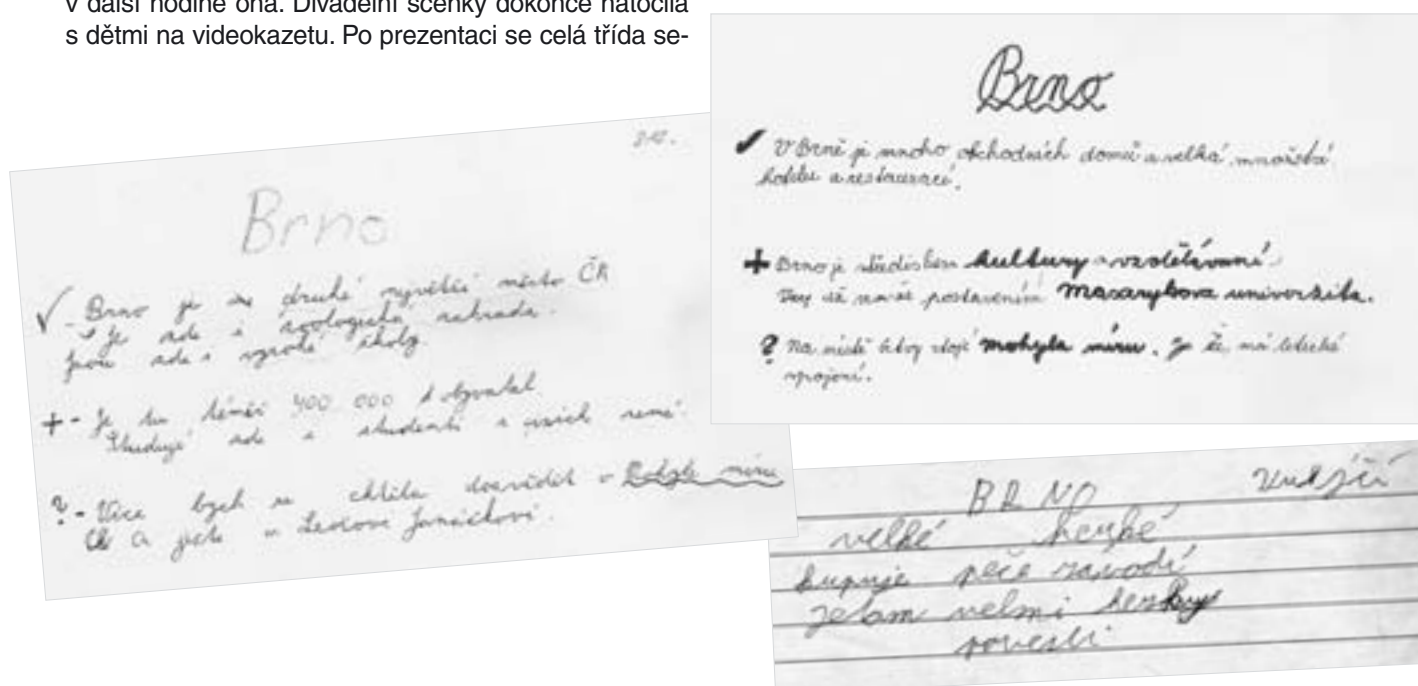 v další hodině ona. Divadelní scénky dokonce natočila
s dětmi na videokazetu. Po prezentaci se celá třída se-
Brno
✓ - Brno je druhé největší město ČR
je zde i zoologická zahrada.
jsou zde i školy.
+ - Je tu téměř 400 000 obyvatel
Studují zde i studenti z
? - Více bych se chtěla dozvědět o Mohyle míru
a ještě o Janáčkovi.
Brno
✓ V Brně je mnoho obchodních domů a velká množství
hotelů a restaurací.
+ Brno je střediskem kultury a vzdělávání.
postavením Masarykova univerzita.
? Na místě bitvy stojí mohyla míru. Je že, má letecké
spojení.
BRNO
velké hezké
kupuje peče závodí
je tam velmi hezky
pověsti